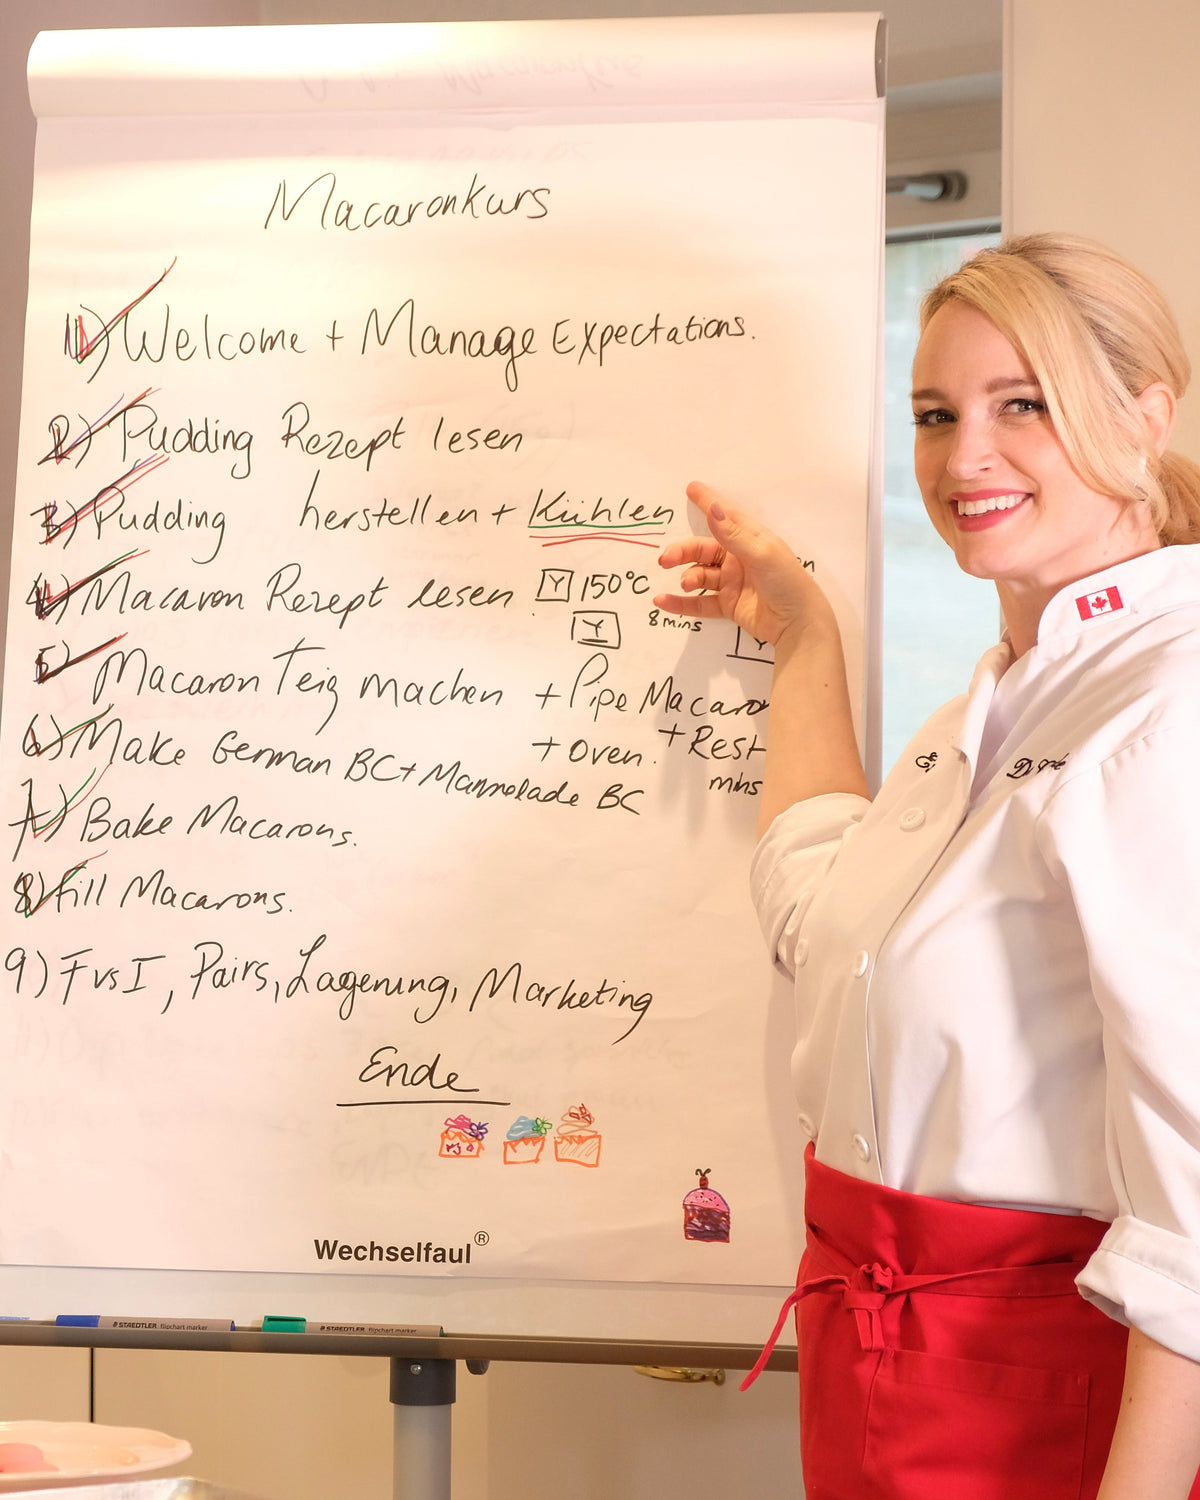 Macaronkurs
1) Welcome + Manage Expectations.
2) Pudding Rezept lesen
3) Pudding herstellen + Kühlen
4) Macaron Rezept lesen Y 150°C
Y 8mins Y
5) Macaron Teig machen + Pipe Macaro
+ Oven. + Rest
mins
6) Make German BC + Marmelade BC
7) Bake Macarons.
8) Fill Macarons.
9) F vs I, Pairs, Lagerung, Marketing
Ende
Wechselfaul®
STAEDTLER flipchart marker
STAEDTLER flipchart marker